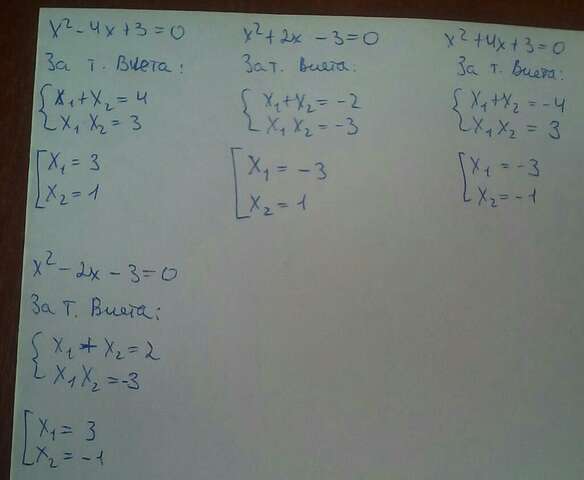 x² - 4x + 3 = 0
За т. Виета:
x₁ + x₂ = 4
x₁ x₂ = 3
x₁ = 3
x₂ = 1
x² + 2x - 3 = 0
За т. Виета:
x₁ + x₂ = -2
x₁ x₂ = -3
x₁ = -3
x₂ = 1
x² + 4x + 3 = 0
За т. Виета:
x₁ + x₂ = -4
x₁ x₂ = 3
x₁ = -3
x₂ = -1
x² - 2x - 3 = 0
За т. Виета:
x₁ + x₂ = 2
x₁ x₂ = -3
x₁ = 3
x₂ = -1